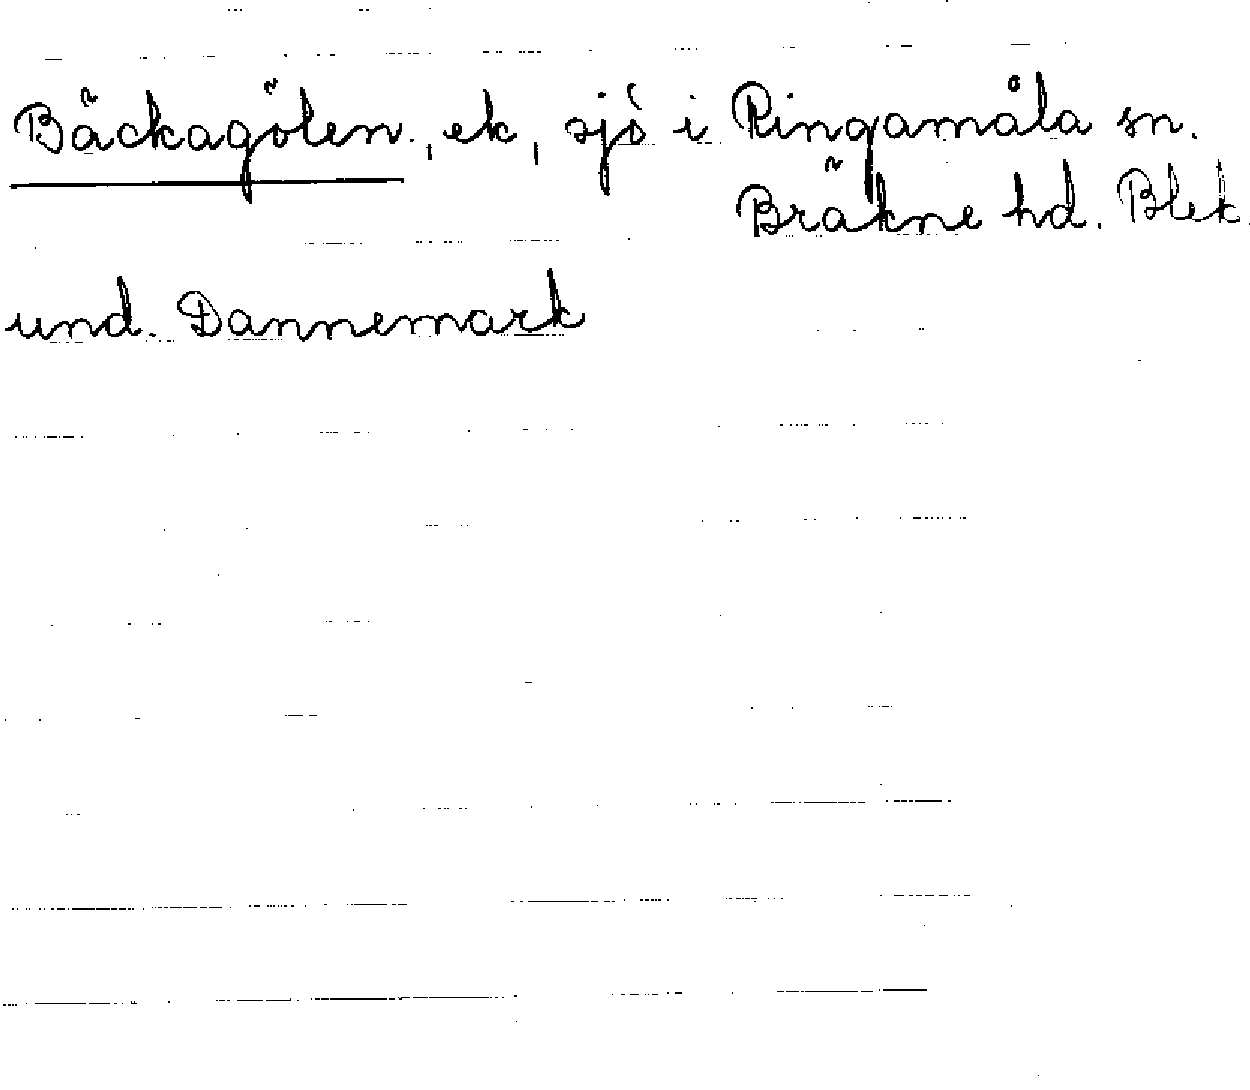 Bäckagölen, ek, sjö i Ringamåla sn.
Bräkne hd. Blek.
und. Dannemark